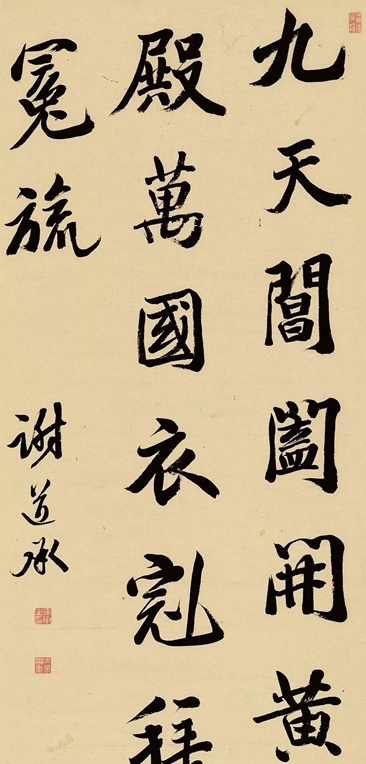 九天閶闔開黃
殿萬國衣冠拜
冕旒
謝道承